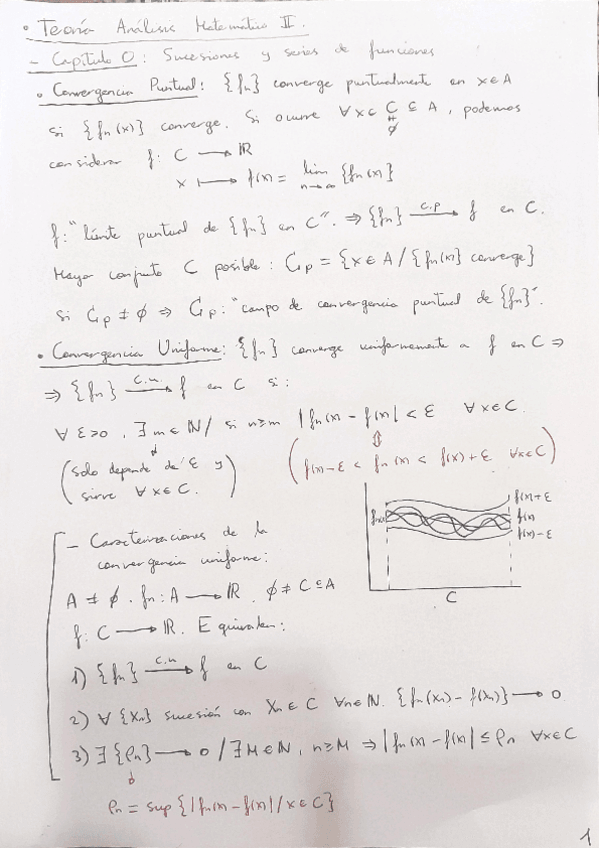 • Teoría Análisis Matemático II.
- Capítulo 0: Sucesiones y series de funciones
• Convergencia Puntual: {fn} converge puntualmente en x∈A
si {fn(x)} converge. Si ocurre ∀x∈ C ⊆ A, podemos
≠
∅
considerar f: C → ℝ
x ↦ f(x) = lim {fn(x)}
n→∞
f: "límite puntual de {fn} en C". ⇒ {fn} —c.p→ f en C.
Mayor conjunto C posible: Cp = {x∈A / {fn(x)} converge}
Si Cp ≠ ∅ ⇒ Cp: "campo de convergencia puntual de {fn}".
• Convergencia Uniforme: {fn} converge uniformemente a f en C ⇒
⇒ {fn} —c.u.→ f en C si:
∀ ε>0, ∃m∈ℕ / si n≥m |fn(x) - f(x)| < ε ∀x∈C.
(solo depende de ε y
sirve ∀x∈C.)
⇕
(f(x)-ε < fn(x) < f(x)+ε ∀x∈C)
fn(x)
f(x)+ε
f(x)
f(x)-ε
C
- Caracterizaciones de la
convergencia uniforme:
A ≠ ∅. fn: A → ℝ. ∅ ≠ C ⊆ A
f: C → ℝ. Equivalen:
1) {fn} —c.u→ f en C
2) ∀ {xn} sucesión con xn∈C ∀n∈ℕ. {fn(xn) - f(xn)} → 0
3) ∃ {ρn} → 0 / ∃M∈ℕ, n≥M ⇒ |fn(x) - f(x)| ≤ ρn ∀x∈C
ρn = sup {|fn(x) - f(x)| / x∈C}
1